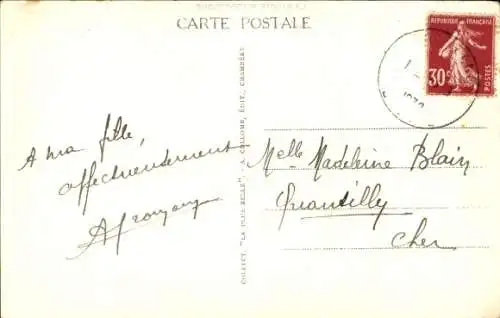 CARTE POSTALE
REPUBLIQUE FRANÇAISE
30c
POSTES
A ma fille,
affectueusement
COLLECT. "LA PLUS BELLE" - COLLOMB, ÉDIT., CHAMBÉRY
Melle Madeleine Blain
Quantilly
Cher